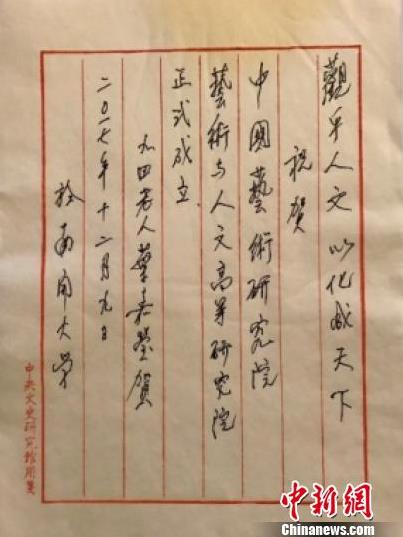 觀乎人文 以化成天下
祝賀
中國藝術研究院
藝術与人文高等研究院
正式成立.
九四老人葉嘉瑩賀
二〇一七年十二月九日
於南開大学
中央文史研究館用箋
中新網
Chinanews.com